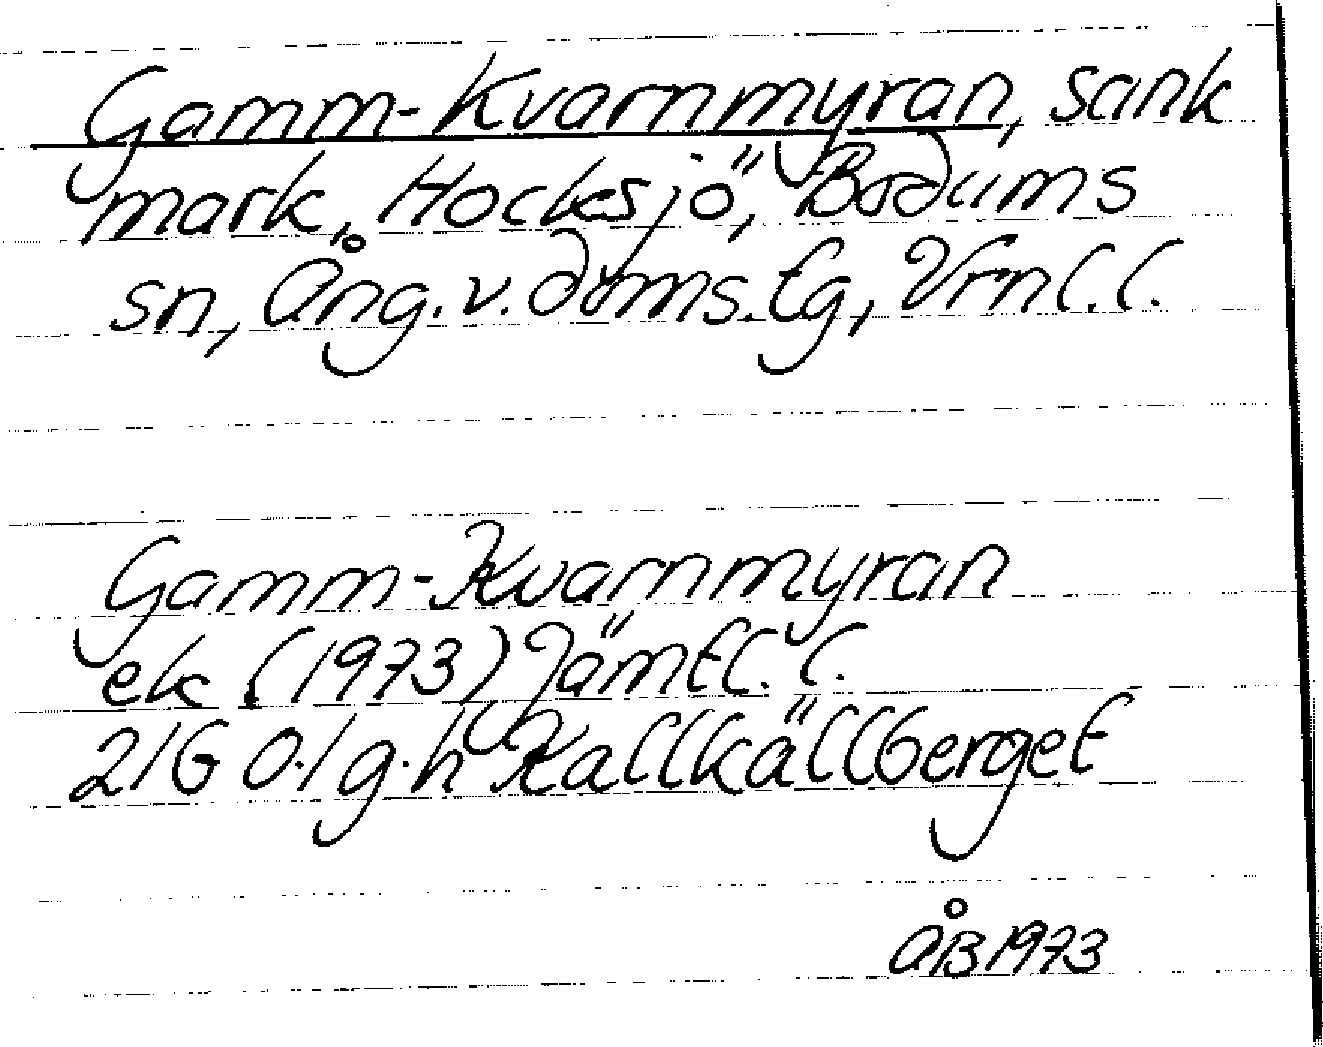 Gamm-Kvarnmyran, sank
mark, Hocksjö, Bodums
sn, Ång.v.doms.tg, Vrnl.l.
Gamm-Kvarnmyran
ek.(1973) Jämtl.l.
21G 0.1 g.h Kallkällberget
ÅB 1973